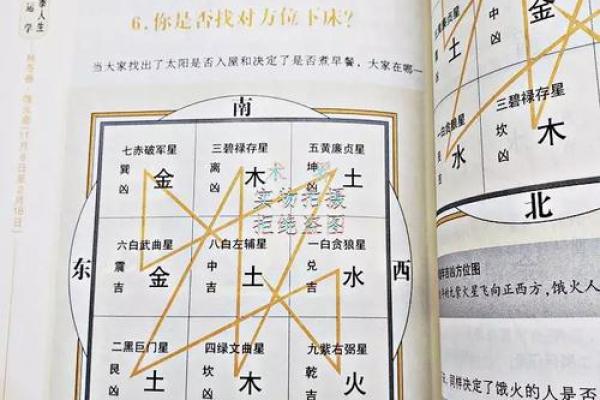 季人生
运学
6.你是否找对方位下床？
当大家找出了太阳是否入屋和决定了是否煮早餐，大家在哪一
南
七赤破军星
三碧禄存星
五黄廉贞星
巽
凶
金
离
凶
木
坤
凶
土
木 星
实物拍摄
拒绝盗图
东
六白武曲星
八白左辅星
一白贪狼星
西
震
吉
金
中
吉
土
兑
吉
水
二黑巨门星
四绿文曲星
九紫右弼星
艮
凶
土
坎
凶
木
乾
吉
火
土
金
一白贪狼星
三碧禄存星
水
坎
凶
木
北
吉凶方位图
九紫火星飞向正西方，饿火人
同样决定了饿火的人是否